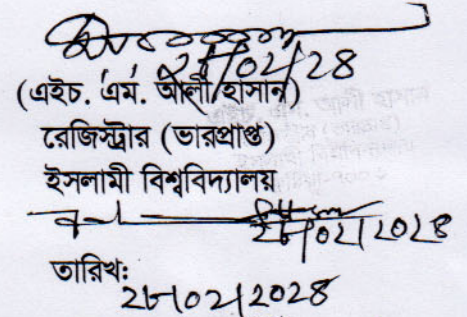 ২৮/০২/২৪
(এইচ. এম. আলী হাসান)
রেজিস্ট্রার (ভারপ্রাপ্ত)
ইসলামী বিশ্ববিদ্যালয়
২৮/০২/২০২৪
তারিখ:
২৮/০২/২০২৪